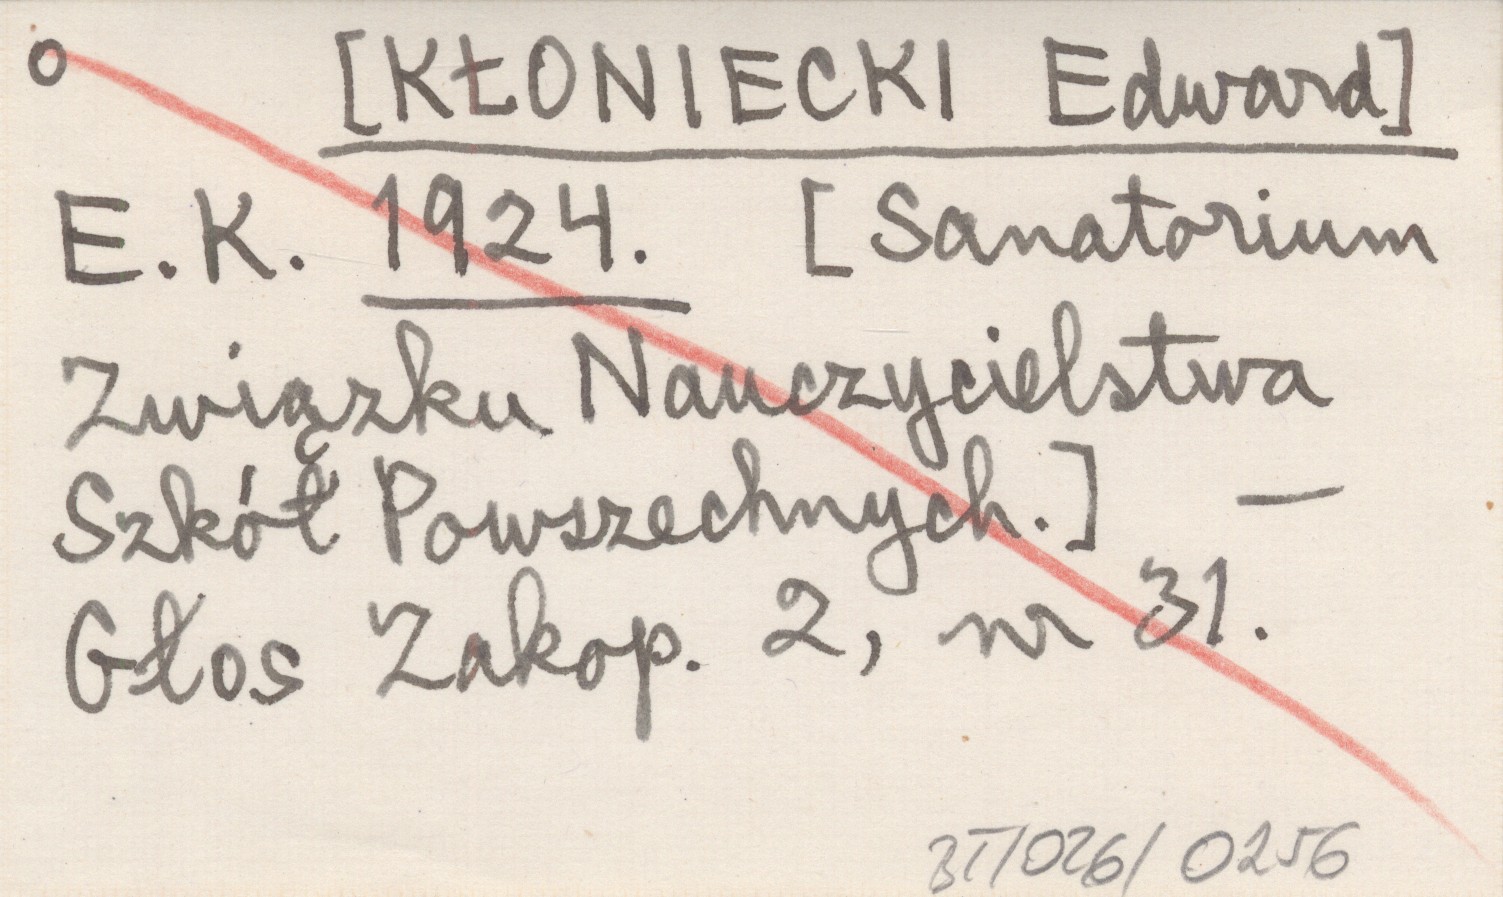 o [KŁONIECKI Edward]
E.K. 1924. [Sanatorium
Związku Nauczycielstwa
Szkół Powszechnych.] —
Głos Zakop. 2, nr 31.
BT/026/0256